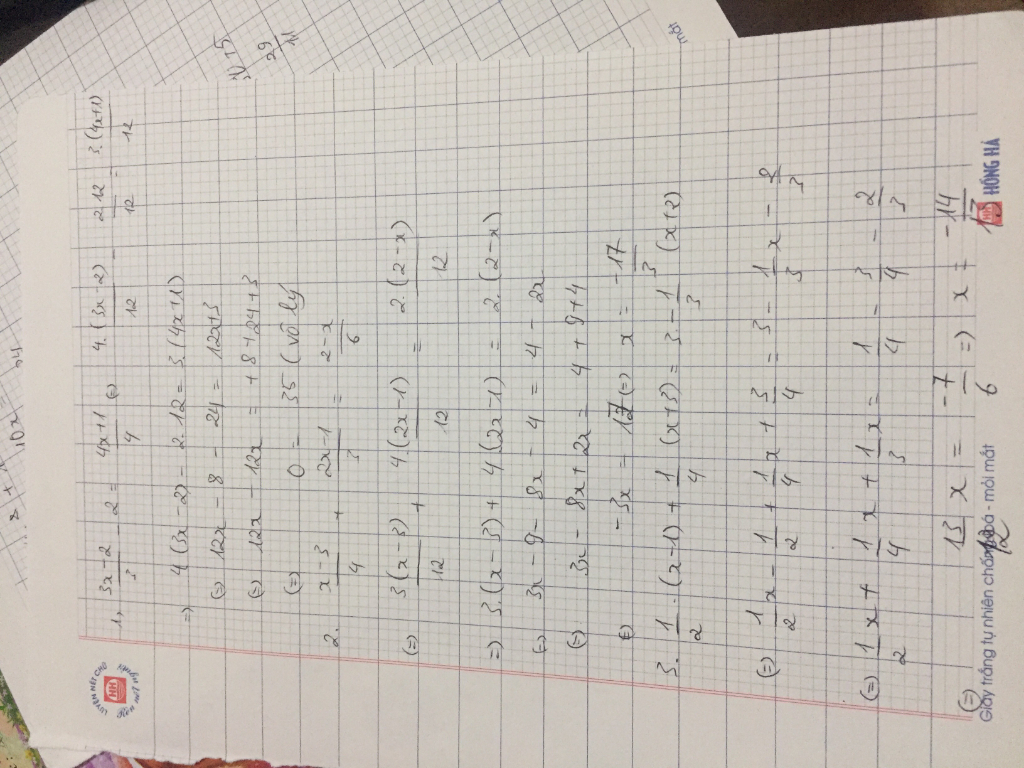 1, (3x-2)/3 - 2 = (4x+1)/4 (=) 4.(3x-2)/12 - 2.12/12 = 3.(4x+1)/12
=) 4(3x-2) - 2.12 = 3.(4x+1)
(=) 12x - 8 - 24 = 12x+3
(=) 12x - 12x = +8+24+3
(=) 0 = 35 (vô lý)
2. (x-3)/4 + (2x-1)/3 = (2-x)/6
(=) 3(x-3)/12 + 4.(2x-1)/12 = 2.(2-x)/12
=) 3.(x-3) + 4(2x-1) = 2.(2-x)
(=) 3x-9- 8x - 4 = 4 - 2x
(=) 3x - 8x + 2x = 4 + 9+4
(=) -3x = 17 (=) x = -17/3
3. 1/2 .(x-1) + 1/4 (x+3) = 3 - 1/3 (x+2)
(=) 1/2 x - 1/2 + 1/4 x + 3/4 = 3 - 1/3 x - 2/3
(=) 1/2 x + 1/4 x + 1/3 x = 1/4 - 3/4 - 2/3
(=) 13/12 x = -7/6 =) x = -14/13
LUYỆN NÉT CHỮ
HH
Giấy trắng tự nhiên chống lóa - mỏi mắt
HH HỒNG HÀ
mắt
29/11
10x